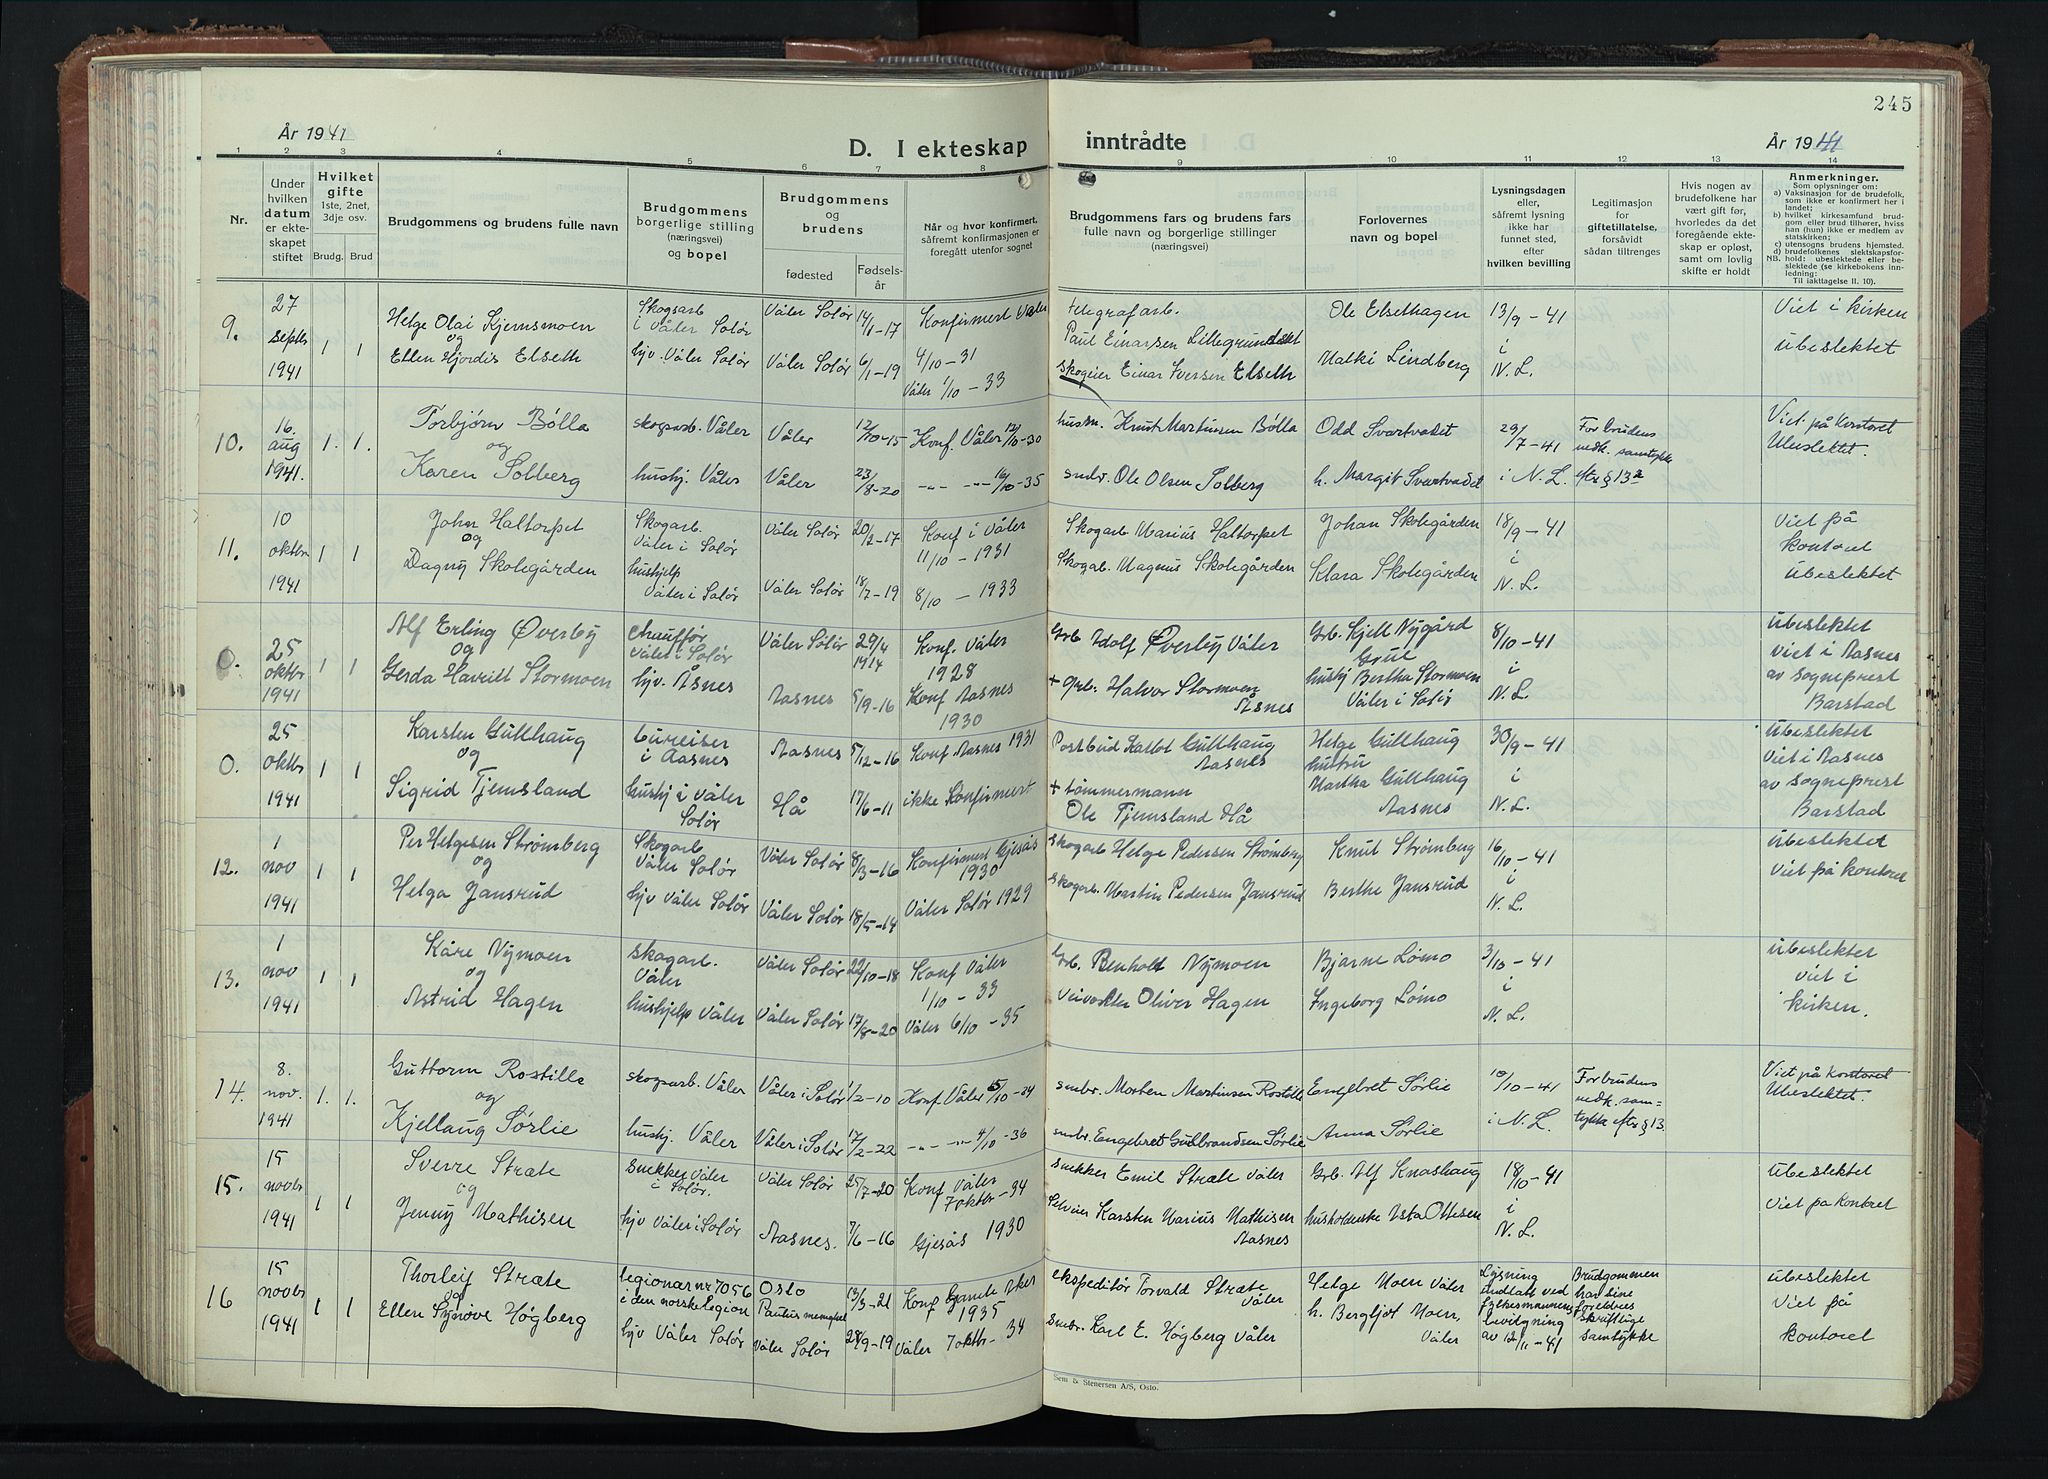 245
År 1941
D. I ekteskap
inntrådte
År 1941
1 2 3 4 5 6 7 8 9 10 11 12 13 14
Nr.
Under hvilken datum er ekteskapet stiftet
Hvilket gifte 1ste, 2net, 3dje osv.
Brudg. Brud
Brudgommens og brudens fulle navn
Brudgommens borgerlige stilling (næringsvei) og bopel
Brudgommens og brudens
fødested
Fødselsår
Når og hvor konfirmert, såfremt konfirmasjonen er foregått utenfor sognet
Brudgommens fars og brudens fars fulle navn og borgerlige stillinger (næringsvei)
Forlovernes navn og bopel
Lysningsdagen eller, såfremt lysning ikke har funnet sted, efter hvilken bevilling
Legitimasjon for giftetillatelse, forsåvidt sådan tiltrenges
Hvis nogen av brudefolkene har vært gift før, hvorledes da det foregående ekteskap er opløst, samt om lovlig skifte er holdt
Anmerkninger.
Som oplysninger om:
a) Vaksinasjon for de brudefolk, som ikke er konfirmert her i landet;
b) hvilket kirkesamfund brudgom eller brud tilhører, hviss han (hun) ikke er medlem av statskirken;
c) utensogns brudens hjemsted.
d) brudefolkenes slektskapsforhold: ubeslektede eller beslektede (se kirkebokens innledning:
Til iakttagelse II. 10).
9. 27 septbr 1941 1 1
Helge Olai Kjernsmoen
og
Ellen Hjørdis Elseth
Skogsarb. i Våler Solør
hjv. Våler Solør
Våler Solør 14/1-17
Våler Solør 6/1-19
Konfirmert Våler 4/10-31
Våler 1/10-33
telegrafarb. Paul Einarsen Lillegrundset
Skogeier Einar Iversen Elseth
Ole Elsethagen
Malki Lindberg
13/9-41 i N. L.
Viet i kirken
ubeslektet
10. 16. aug 1941. 1. 1.
Torbjørn Bølla
og
Karen Solberg
skogsarb. Våler
hushj. Våler
Våler 12/10-15
Våler 23/8-20
Konf. Våler 12/10-30
-"- -"- 16/10-35
husm. Knut Martinsen Bølla
smbr. Ole Olsen Solberg
Odd Svartvadet
h. Margit Svartvadet
29/7-41 i N. L.
For brudens vedk. samtykke eftr § 13a
Viet på kontoret
Ubeslektet.
11. 10 oktbr 1941 1 1
John Haltorpet
og
Dagny Skolegården
Skogarb. Våler i Solør
hushjelp Våler i Solør
Våler Solør 20/2-17
Våler Solør 18/7-19
Konf i Våler 11/10-1931
8/10-1933
Skogarb Marius Haltorpet
Skogarb. Magnus Skolegården
Johan Skolegården
Klara Skolegården
18/9-41 i N. L.
Viet på kontoret
ubeslektet
0. 25 oktbr 1941 1 1
Alf Erling Øverby
og
Gerda Havrill Stormoen
chauffør Våler i Solør
hjv. Åsnes
Våler Solør 29/4 1914
Aasnes 5/9-16
Konf. Våler 1928
Konf Aasnes 1930
Grb Adolf Øverby Våler
+ Grb. Halvor Stormoen Åsnes
Grb. Kjell Nygård Grue
hushj Bertha Stormoen Våler i Solør
8/10-41 i N. L.
ubeslektet
Viet i Aasnes av Sogneprest Barstad
0. 25 oktbr 1941 1 1
Karsten Gullhaug
og
Sigrid Tjemsland
bureiser i Aasnes
hushj i Våler Solør
Aasnes 5/12-16
Hå 17/6-11
Konf Aasnes 1931
ikke Konfirmert
Postbud Karlot Gullhaug Aasnes
+ tømmermann Ole Tjemsland Hå
Helge Gullhaug
hustru Martha Gullhaug Aasnes
30/9-41 i N. L.
ubeslektet
Viet i Aasnes av Sogneprest Barstad
12. 1 nov 1941 1 1
Per Helgesen Strømberg
og
Helga Jansrud
Skogarb Våler Solør
hjv Våler Solør
Våler Solør 8/3-16
Våler Solør 18/5-14
Konfirmert Gjesås 1930
Våler Solør 1929
Skogarb Helge Pedersen Strømberg
Skogarb. Martin Pedersen Jansrud
Knut Strømberg
Berthe Jansrud
16/10-41 i N. L.
ubeslektet
Viet på kontoret
13. 1 nov 1941 1 1
Kåre Nymoen
og
Astrid Hagen
skogarb. Våler
hushjelp Våler
Våler Solør 22/10-18
Våler Solør 17/8-20
Konf Våler 1/10-33
Våler 6/10-35
Grb. Benholt Nymoen
Veivokter Oliver Hagen
Bjarne Lømo
Ingeborg Lømo
3/10-41 i N. L.
ubeslektet
Viet i kirken.
14. 8. nov. 1941 1. 1.
Guttorm Rostille
og
Kjellaug Sørlie
skogsarb. Våler
hushj. Våler
Våler i Solør 1/2-10
Våler i Solør 17/2-22
Konf. Våler 5/10-24
-"- -"- 4/10-36
smbr. Morten Martinsen Rostille
smbr. Engebret Gulbrandsen Sørlie
Engebret Sørlie
Anna Sørlie
10/10-41 i N. L.
For brudens vedk. samtykke eftr § 13.
Viet på kontoret
Ubeslektet.
15. 15 novbr 1941 1 1
Sverre Stræte
og
Jenny Mathisen
snekker Våler i Solør.
hjv Våler i Solør
Våler Solør 25/7-20
Aasnes. 7/6-16
Konf Våler 7 oktbr-34
Gjesås 1930
snekker Emil Stræte Våler
Selveier Karsten Marius Mathisen Aasnes
Grb. Alf Knashaug
husholderske Asta Ottesen
18/10-41 i N. L.
ubeslektet
Viet på kontoret
16 15 novbr 1941 1 1
Thorleif Stræte
og
Ellen Synøve Høgberg
legionær nr 7056 i den norske Legion
hjv Våler Solør
Oslo Paulus menighet 13/3-21
Våler Solør 28/9-19
Konf Gamle Aker 1935
Våler 7 oktbr-34
ekspeditør Torvald Stræte Våler
Smbr. Karl E. Høgberg Våler
Helge Moen Våler
h. Bergljot Moen, Våler
Lysning undlatt ved fylkesmannens bevilgning av 12/11-41
Brudgommen har sine foreldres skriftlige samtykke
ubeslektet
Viet på kontoret
Sem & Stenersen A/S, Oslo.